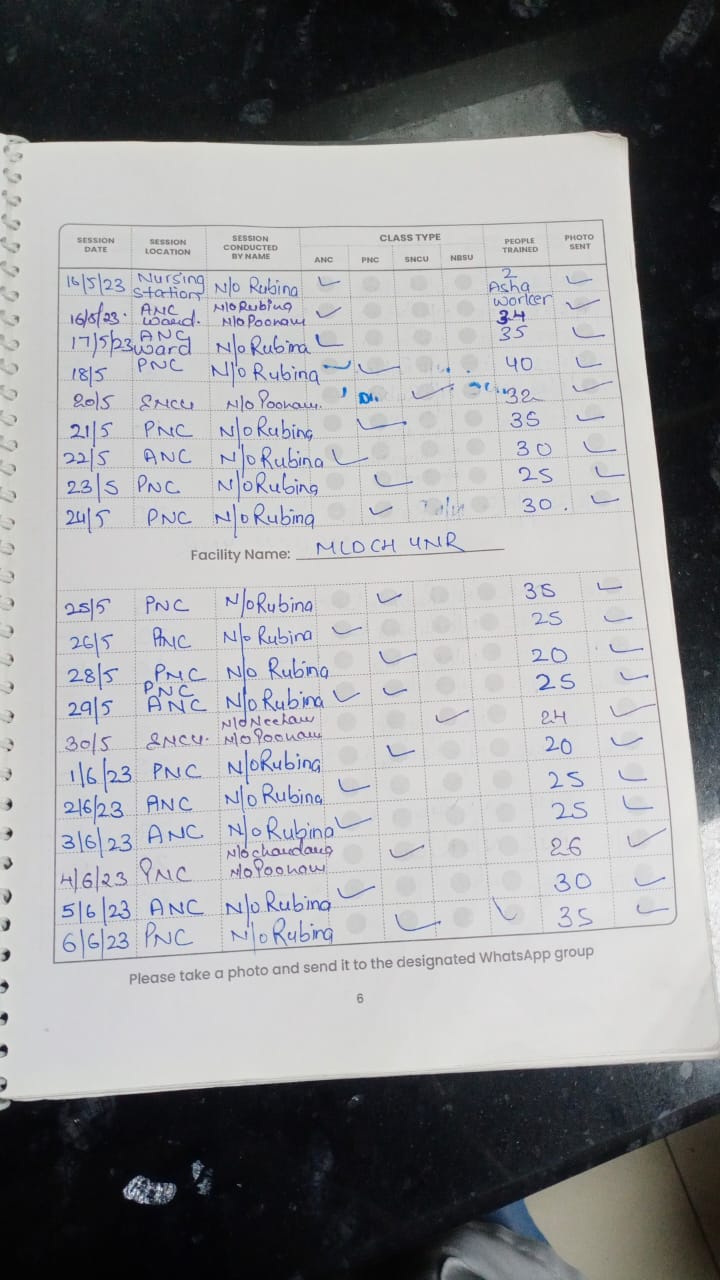 SESSION DATE SESSION LOCATION SESSION CONDUCTED BY NAME CLASS TYPE PEOPLE TRAINED PHOTO SENT
ANC PNC SNCU NBSU
16/5/23 Nursing Station N/o Rubina ✓ 2 Asha Worker ✓
16/5/23. ANC Ward. N/o Rubina N/o Poonam ✓ 34 ✓
17/5/23 ANC Ward N/o Rubina ✓ 35 ✓
18/5 PNC N/o Rubina ✓ 40 ✓
20/5 SNCU N/o Poonam. ✓ 32 ✓
21/5 PNC N/o Rubina ✓ 35 ✓
22/5 ANC N/o Rubina ✓ 30 ✓
23/5 PNC N/o Rubina ✓ 25 ✓
24/5 PNC N/o Rubina ✓ 30. ✓
Facility Name: MLDCH
25/5 PNC N/o Rubina ✓ 35 ✓
26/5 N/o Rubina ✓ 25 ✓
28/5 PNC N/o Rubina ✓ 20 ✓
29/5 PNC ANC N/o Rubina ✓ ✓ 25 ✓
30/5 SNCU. N/o Poonam ✓ 24 ✓
1/6/23 PNC N/o Rubina ✓ 20 ✓
2/6/23 ANC N/o Rubina ✓ 25 ✓
3/6/23 ANC N/o Rubina ✓ 25 ✓
4/6/23 PNC N/o Poonam ✓ 26 ✓
5/6/23 ANC N/o Rubina ✓ 30 ✓
6/6/23 PNC N/o Rubina ✓ ✓ 35 ✓
Please take a photo and send it to the designated WhatsApp group
6